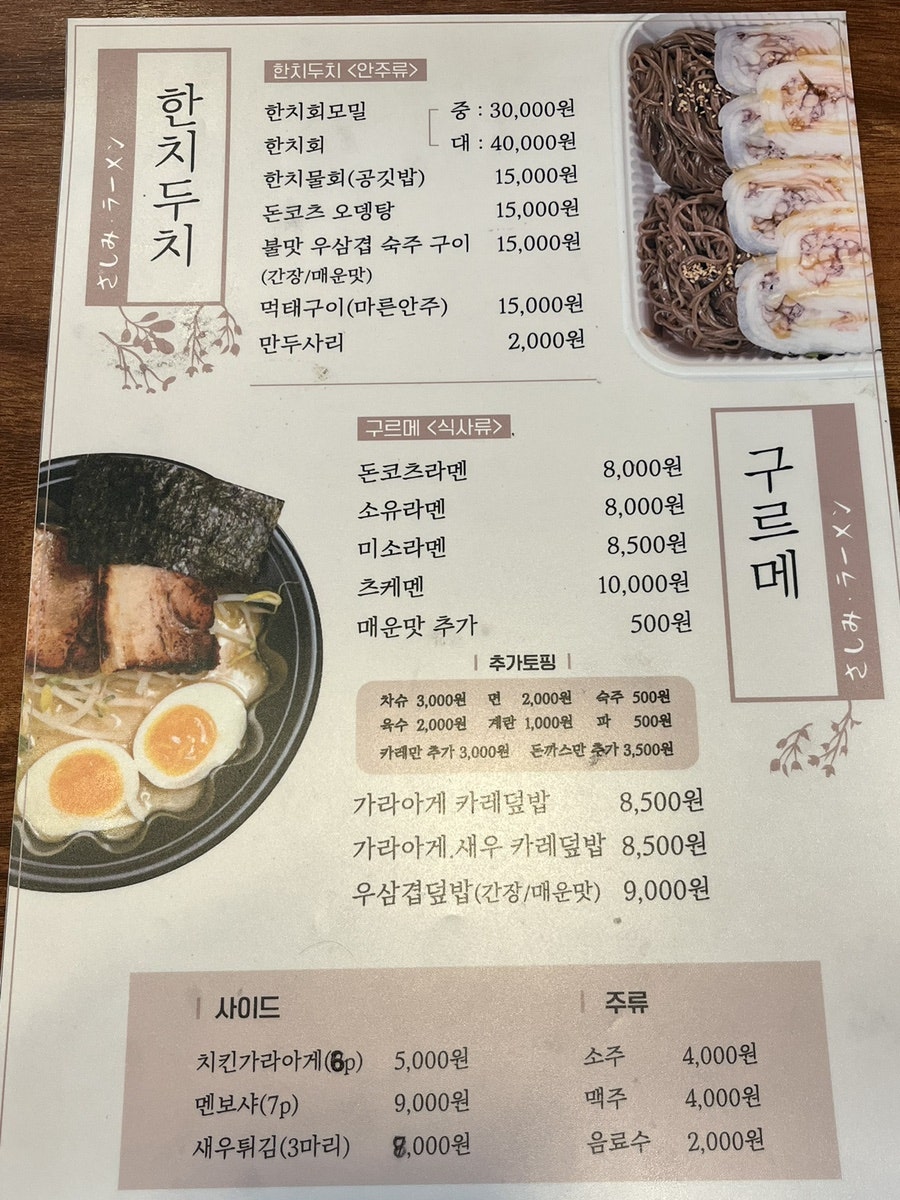 한치두치
さしみ・ラーメン
한치두치 <안주류>
한치회모밀 중 : 30,000원
한치회 대 : 40,000원
한치물회(공깃밥) 15,000원
돈코츠 오뎅탕 15,000원
불맛 우삼겹 숙주 구이 15,000원
(간장/매운맛)
먹태구이(마른안주) 15,000원
만두사리 2,000원
구르메
さしみ・ラーメン
구르메 <식사류>
돈코츠라멘 8,000원
소유라멘 8,000원
미소라멘 8,500원
츠케멘 10,000원
매운맛 추가 500원
추가토핑
차슈 3,000원 면 2,000원 숙주 500원
육수 2,000원 계란 1,000원 파 500원
카레만 추가 3,000원 돈까스만 추가 3,500원
가라아게 카레덮밥 8,500원
가라아게.새우 카레덮밥 8,500원
우삼겹덮밥(간장/매운맛) 9,000원
사이드
치킨가라아게(6p) 5,000원
멘보샤(7p) 9,000원
새우튀김(3마리) ,000원
주류
소주 4,000원
맥주 4,000원
음료수 2,000원